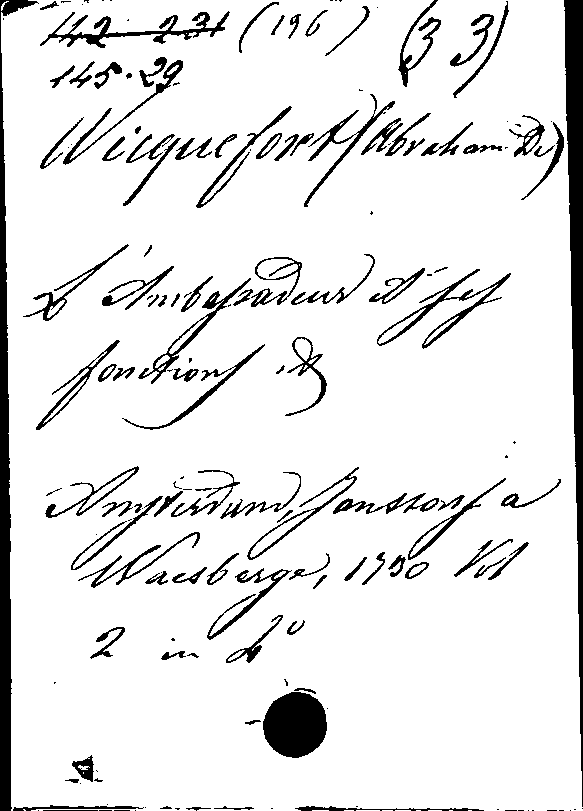 142 231 (196) (33)
145.29
Wicquefort (Abraham De)
L'Ambassadeur et ses
fonctions &
Amsterdam, Janssons a
Waesberge, 1730 Vol
2 in 4º